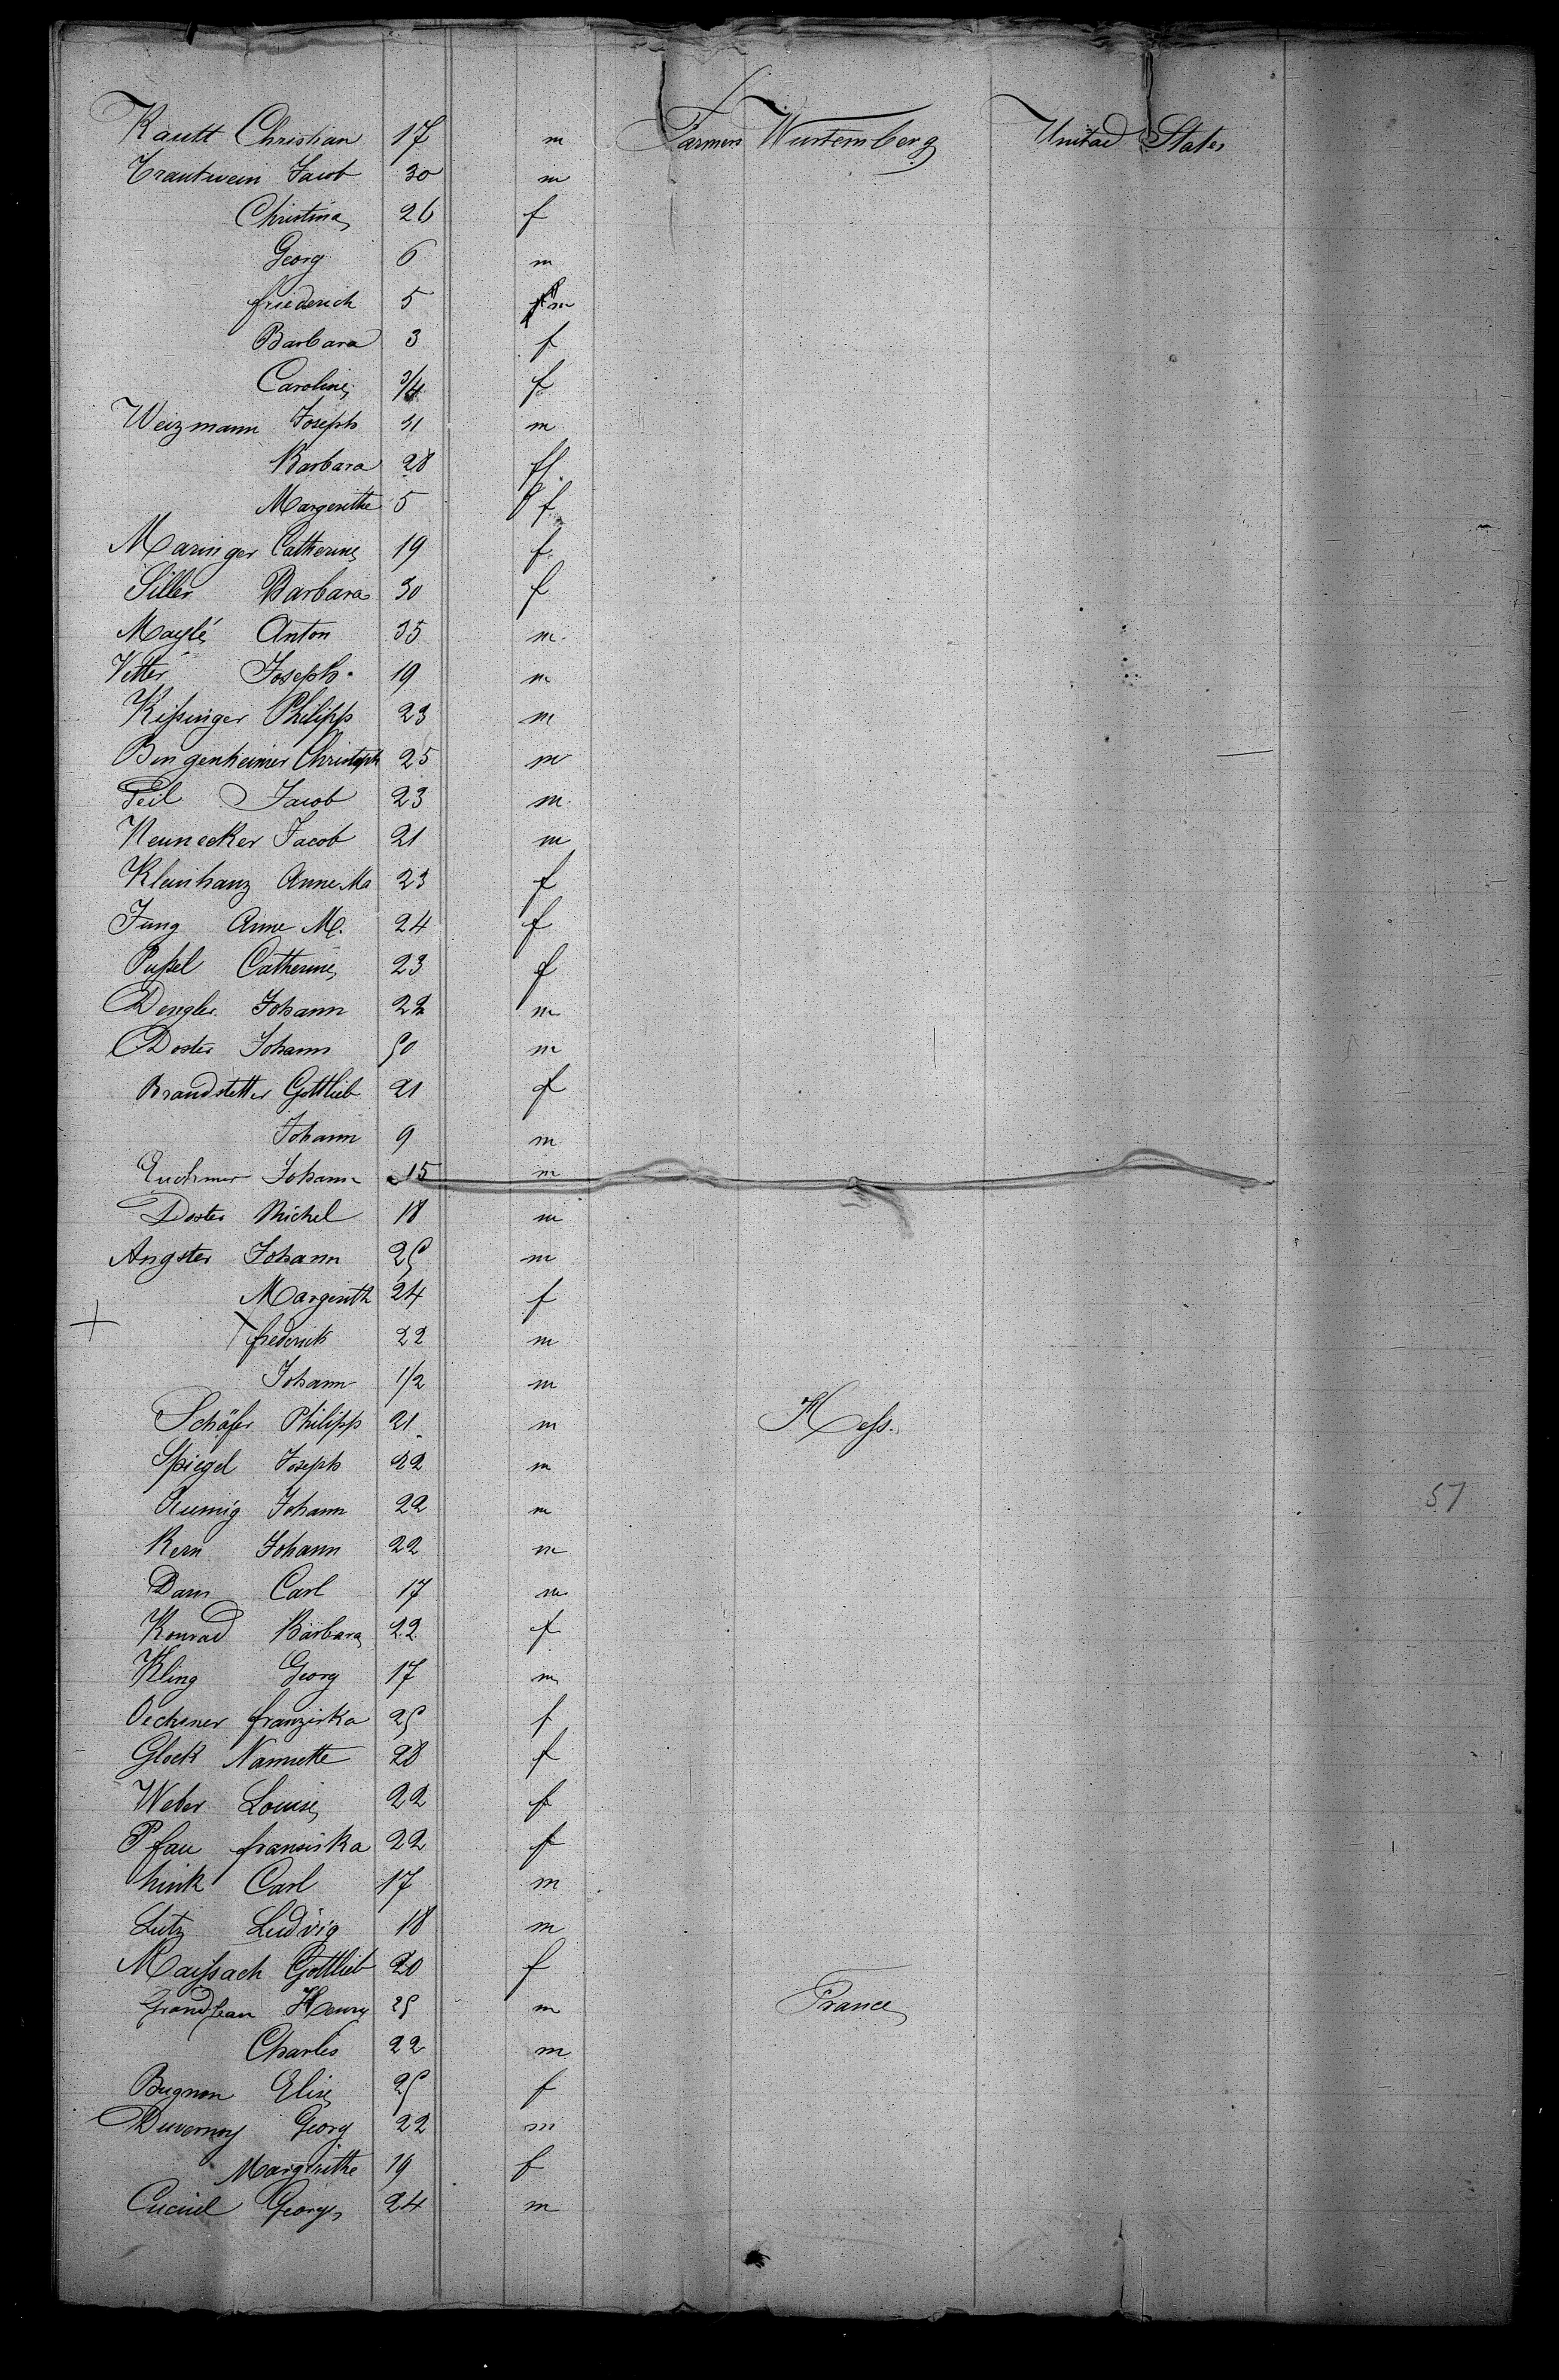 Kautt Christian 17 m Farmers Wurtemberg United States
Trautwein Jacob 30 m
Christina 26 f
Georg 6 m
friederich 5 m
Barbara 3 f
Caroline 3/4 f
Weizmann Joseph 31 m
Barbara 28 f.
Margerithe 5 f
Maringer Catherine 19 f
Siller Barbara 30 f
Maylé Anton 35 m
Vetter Joseph 19 m
Kißinger Philipp 23 m
Bingenheimer Christoph 25 m
Feil Jacob 23 m
Neunecker Jacob 21 m
Kleinhanz Anne Ma 23 f
Jung Anne M. 24 f
Pußel Catherine 23 f
Dengler Johann 22 m
Doster Johann 50 m
Brandstetter Gottlieb 21 f
Johann 9 m
Johann 15 m
Doster Michel 18 m
Angster Johann 25 m
Margerith 24 f
+ frederick 22 m
Johann 1/2 m
Schäfer Philipp 21 m Heß.
Spiegel Joseph 22 m
Johann 22 m
Kern Johann 22 m
Dam Carl 17 m
Konrad Barbara 22 f
Kling Georg 17 m
Oechsner franziska 25 f
Glock Nannette 28 f
Weber Louise 22 f
Pfau fransiska 22 f
Carl 17 m
Lutz Ludvig 18 m
Maißach Gottlieb 20 f
Grandjean Henry 25 m France
Charles 22 m
Bugnon Elise 25 f
Duvernoy Georg 22 m
Margerithe 19 f
Cucuel Georges 24 m
57